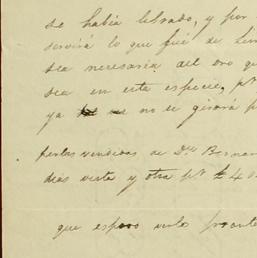 se había librado, y por
servirá lo que fué de
sea necesaria del oro qu
sea en esta especie, pr
ya no se girará p
perlas vendidas de Dn Bernar
dias vista y otra pr £ 40
que espero verlo pronto